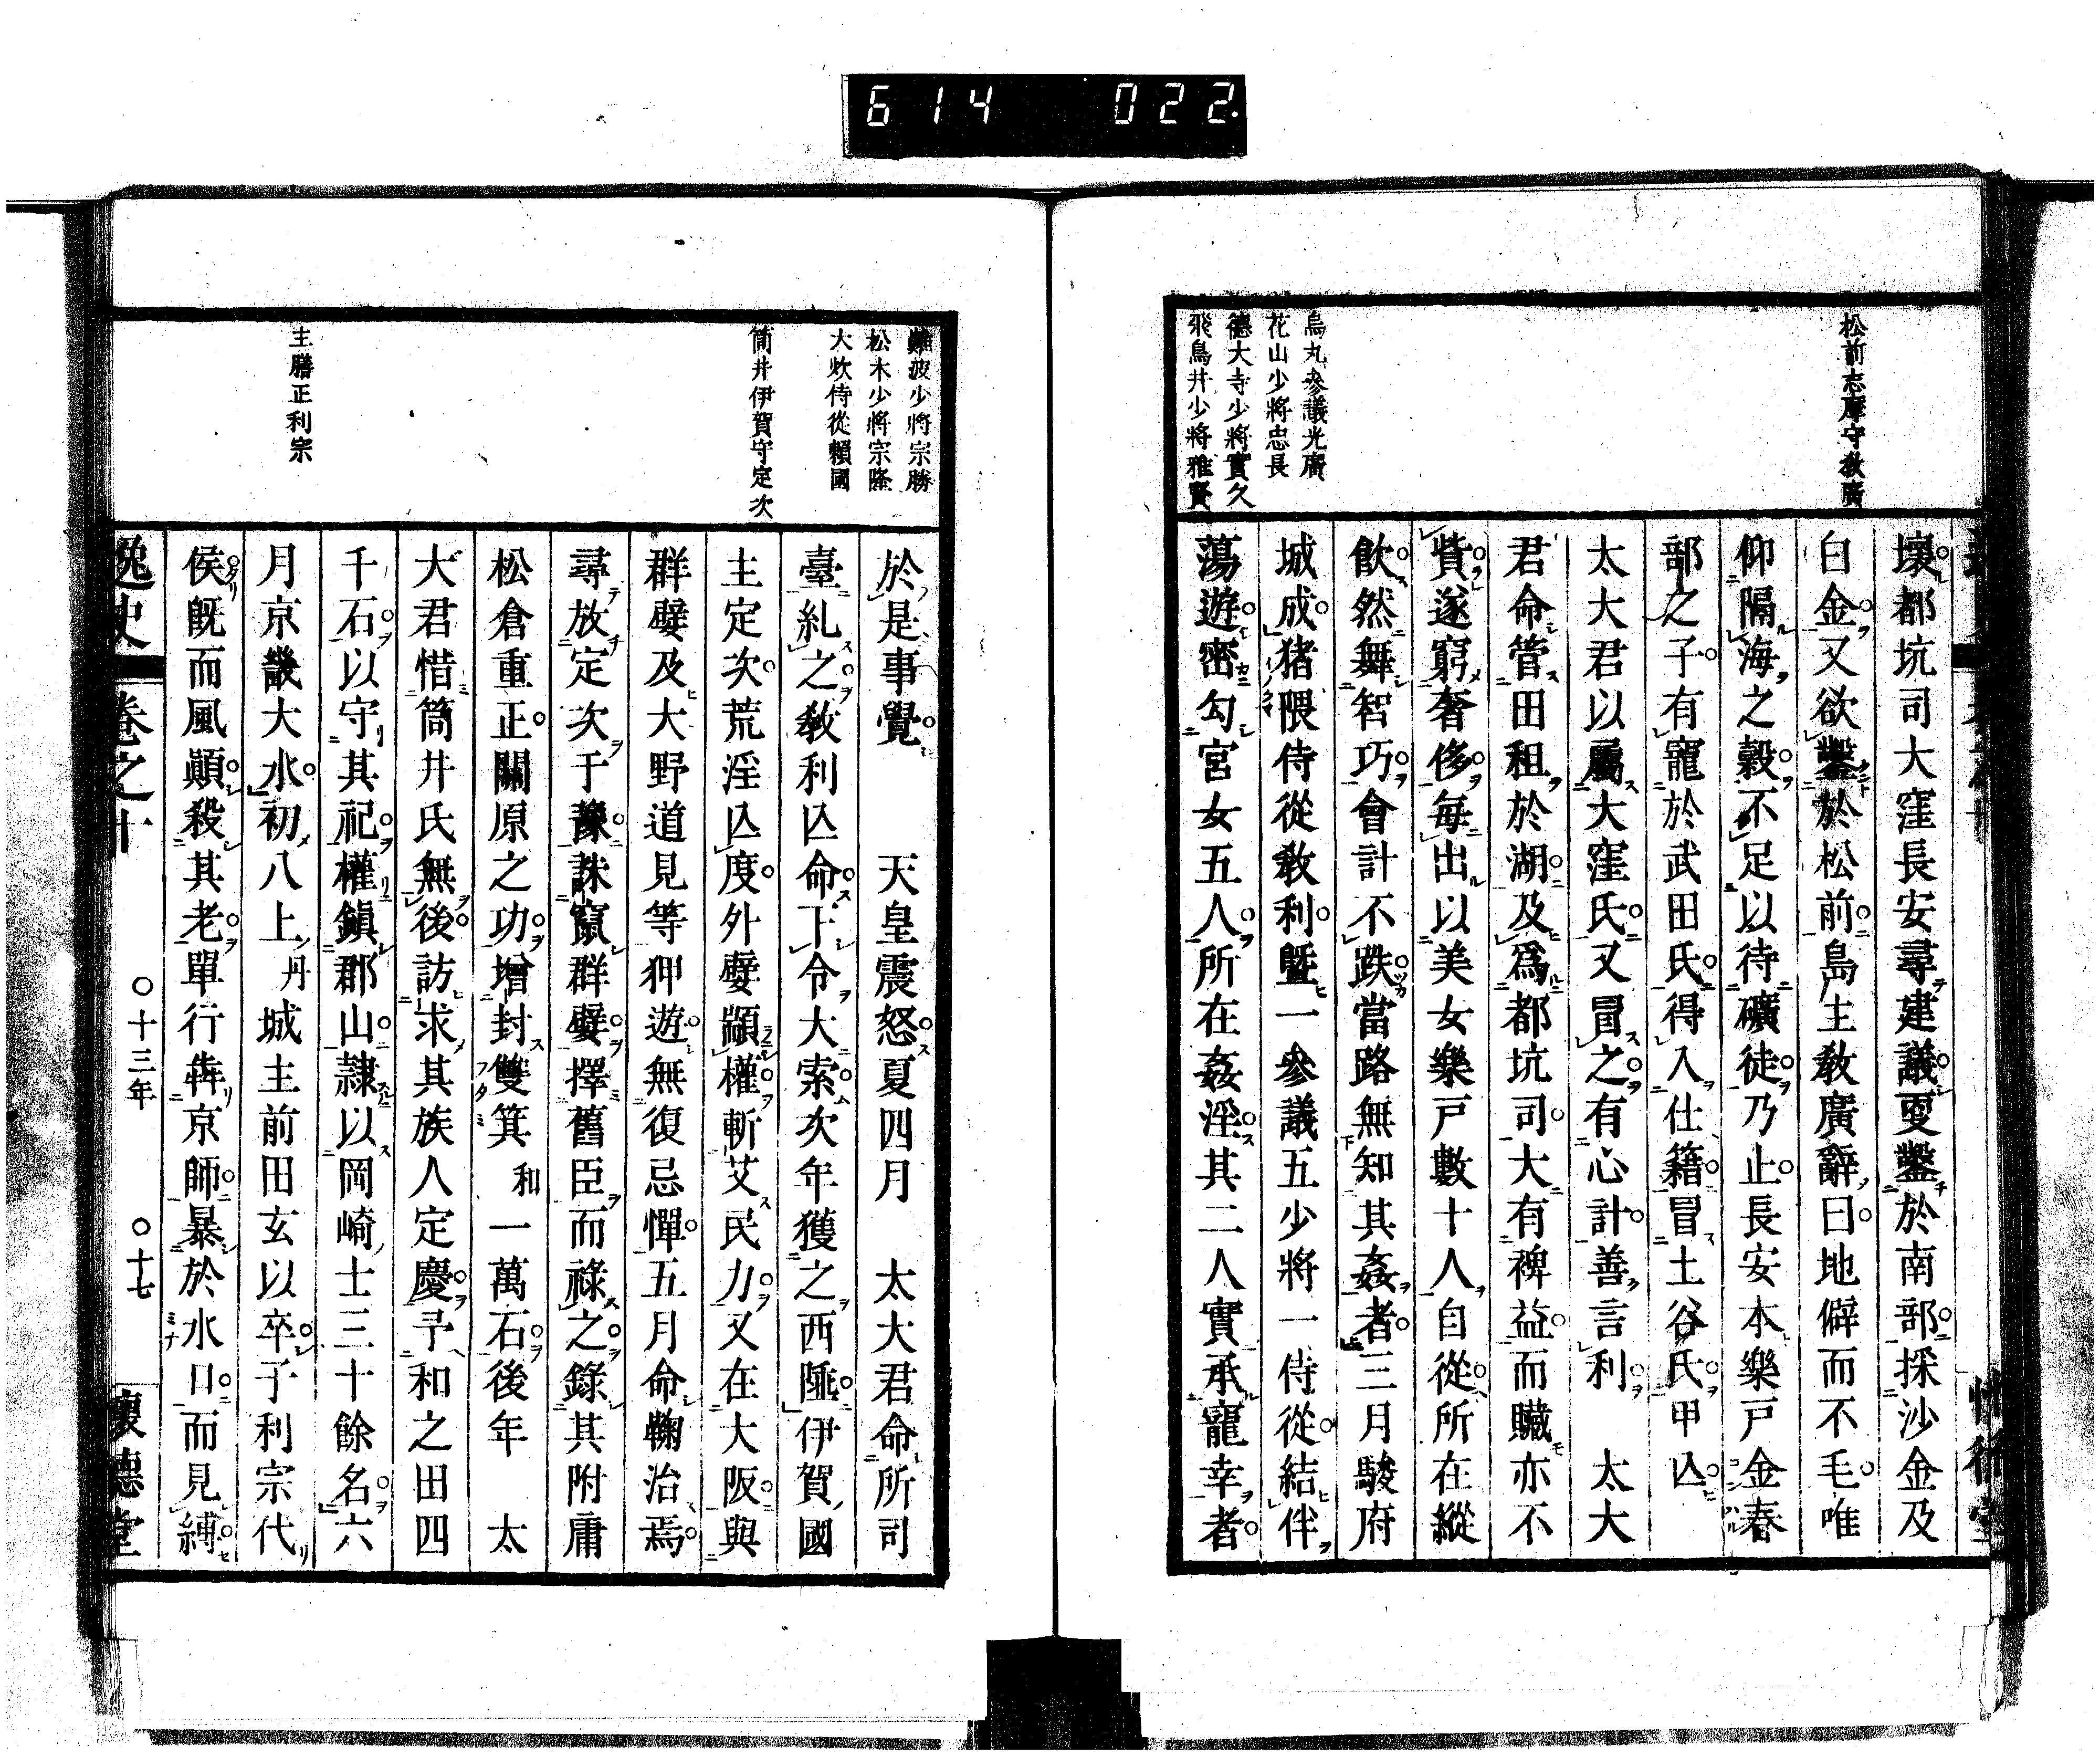 614 022
松前志摩守教廣
烏丸參議光廣
花山少將忠長
德大寺少將實久
飛鳥井少將雅賢
壞都坑司大窪長安尋建議更鑿於南部採沙金及
白金又欲鑿於松前島主教廣辭曰地僻而不毛唯
仰隔海之穀不足以待礦徒乃止長安本樂戸金春
部之子有寵於武田氏得入仕籍冒土谷氏甲亾
太大君以屬大窪氏又冒之有心計善言利　太大
君命管田租於湖及爲都坑司大有裨益而贓亦不
貲遂窮奢侈每出以美女樂戸數十人自從所在縱
飮然舞智巧會計不跌當路無知其姦者三月駿府
城成猪隈侍從敎利曁一參議五少將一侍從結伴
蕩遊密勾宮女五人所在姦淫其二人實承寵幸者
難波少將宗勝
松木少將宗隆
大炊侍從賴國
筒井伊賀守定次
主膳正利宗
於是事覺　　天皇震怒夏四月　太大君命所司
臺糺之敎利亾命下令大索次年獲之西陲伊賀國
主定次荒淫亾度外嬖顓權斬艾民力又在大阪與
群嬖及大野道見等狎遊無復忌憚五月命鞠治焉
尋放定次于豫誅竄群嬖擇舊臣而祿之錄其附庸
松倉重正關原之功增封雙箕和一萬石後年　太
大君惜筒井氏無後訪求其族人定慶予和之田四
千石以守其祀權鎭郡山隷以岡崎士三十餘名六
月京畿大水初八上丹城主前田玄以卒子利宗代
侯既而風顚殺其老單行犇京師暴於水口而見縛
逸史　卷之十　○十三年　○十七　懷德堂